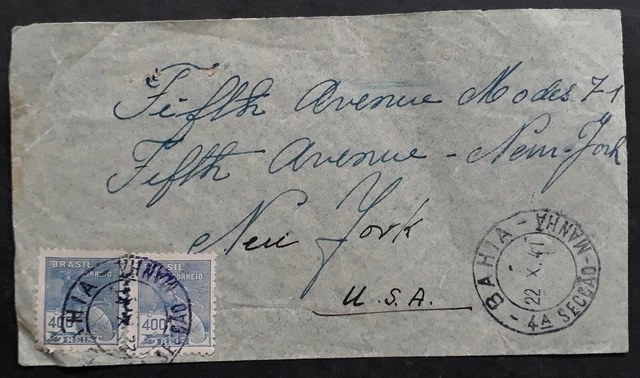 Fifth Avenue Modes 71
Fifth Avenue - New-York
New York
U.S.A.
BAHIA - MANHÃ
22 X. 41
- 4A SECÇÃO -
BRASIL CORREIO
400 REIS
BRASIL CORREIO
400 REIS
BAHIA - MANHÃ